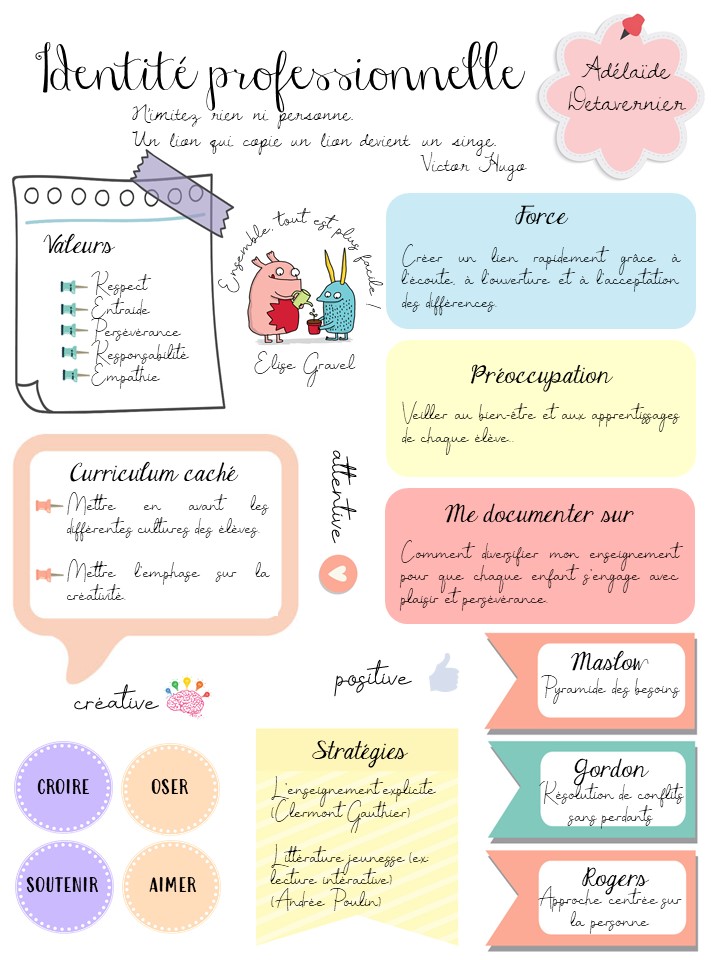 Identité professionnelle
Adélaïde
Detavernier
N'imitez rien ni personne.
Un lion qui copie un lion devient un singe.
Victor Hugo
Valeurs
Respect
Entraide
Persévérance
Responsabilité
Empathie
Ensemble, tout est plus facile !
Elise Gravel
Force
Créer un lien rapidement grâce à
l'écoute, à l'ouverture et à l'acceptation
des différences.
Préoccupation
Veiller au bien-être et aux apprentissages
de chaque élève..
Curriculum caché
Mettre en avant les
différentes cultures des élèves.
Mettre l'emphase sur la
créativité.
attentive
Me documenter sur
Comment diversifier mon enseignement
pour que chaque enfant s'engage avec
plaisir et persévérance.
créative
positive
Maslow
Pyramide des besoins
Gordon
Résolution de conflits
sans perdants
Rogers
Approche centrée sur
la personne
CROIRE
OSER
SOUTENIR
AIMER
Stratégies
L'enseignement explicite
(Clermont Gauthier)
Littérature jeunesse (ex:
lecture intéractive)
(Andrée Poulin)